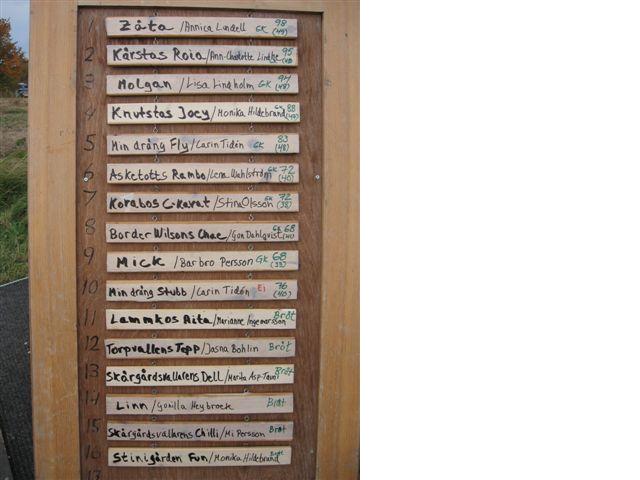 1 Zäta / Annica Lundell GK 98 (49)
2 Kårstas Roia / Ann-Charlotte Lindhe 95
3 Molgan / Lisa Lindholm GK 94 (48)
4 Knutstas Joey / Monika Hildebrand GK 88
5 Min dräng Fly / Carin Tidén GK 83 (48)
6 Asketotts Rambo / Lena Wahlström GK 72 (40)
7 Korabos C-Kavat / Stina Olsson GK 72 (38)
8 Border Wilsons Chae / Gun Dahlqvist GK 68
9 Mick / Barbro Persson GK 68 (33)
10 Min dräng Stubb / Carin Tidén Ei 76 (40)
11 Lammkos Aita / Marianne Ingemarsson Bröt
12 Torpvallens Tepp / Jasna Bohlin Bröt
13 Skärgårdsvallarens Dell / Marita Asp-Tauni Bröt
14 Linn / Gunilla Heybroek Bröt
15 Skärgårdsvallarens Chilli / Mi Persson Bröt
16 Stinigården Fun / Monika Hildebrand Bröt
17